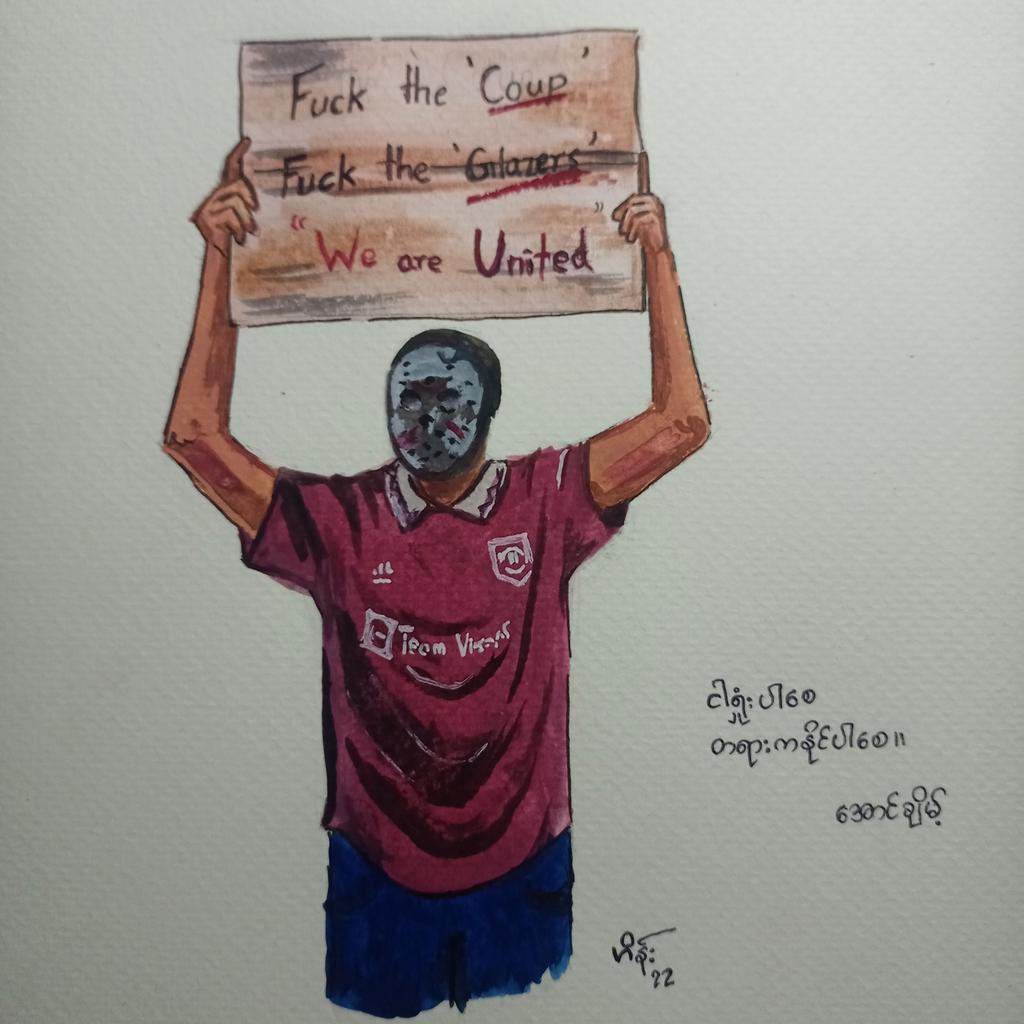 Fuck the 'Coup'
Fuck the 'Glazers'
"We are United"
Team
ငါရှုံးပါစေ
တရားကနိုင်ပါစေ။
အောင်ချိမ့်
ဟိန်း
22